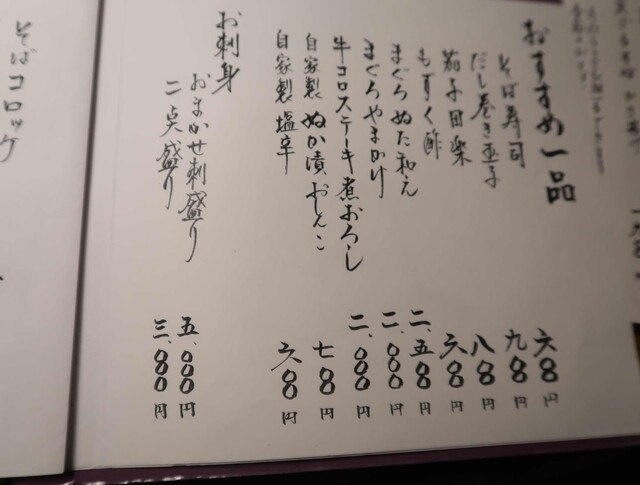 おすすめ一品
そば寿司 六〇〇円
だし巻き玉子 九〇〇円
茄子田楽 八〇〇円
もずく酢 六〇〇円
まぐろぬた和え 二、五〇〇円
まぐろやまかけ 二、〇〇〇円
牛コロステーキ煮おろし 二、〇〇〇円
自家製ぬか漬おしんこ 七〇〇円
自家製塩辛 六〇〇円
お刺身
おまかせ刺盛り 五、〇〇〇円
二点盛り 三、〇〇〇円
そばコロッケ